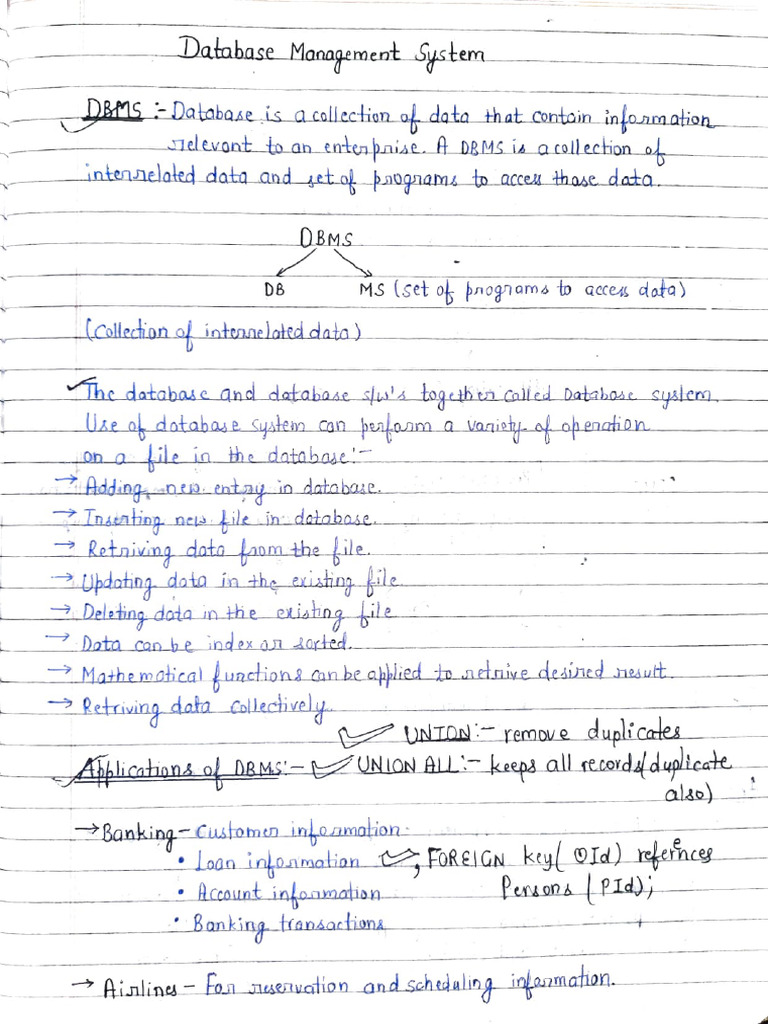 Database Management System
DBMS :- Database is a collection of data that contain information
relevant to an enterprise. A DBMS is a collection of
interrelated data and set of programs to access those data.
DBMS
DB MS (set of programs to access data)
(collection of interrelated data)
The database and database s/w's together called Database system.
Use of database system can perform a variety of operation
on a file in the database:-
→ Adding new entry in database.
→ Inserting new file in database.
→ Retriving data from the file.
→ Updating data in the existing file.
→ Deleting data in the existing file
→ Data can be index or sorted.
→ Mathematical functions can be applied to retrive desired result.
→ Retriving data collectively.
UNION:- remove duplicates
Applications of DBMS:- UNION ALL:- keeps all records(duplicate
also)
→ Banking - Customer information.
• Loan information , FOREIGN key( OId) references
• Account information Persons (PId);
• Banking transactions
→ Airlines - For reservation and scheduling information.